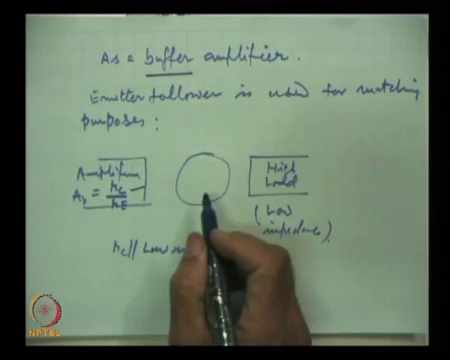 As a buffer amplifier.
Emitter follower is used for matching
purposes:
Amplifier
Av = rc
rE
High
Load
(Low
impedance)
rc||
NPTEL